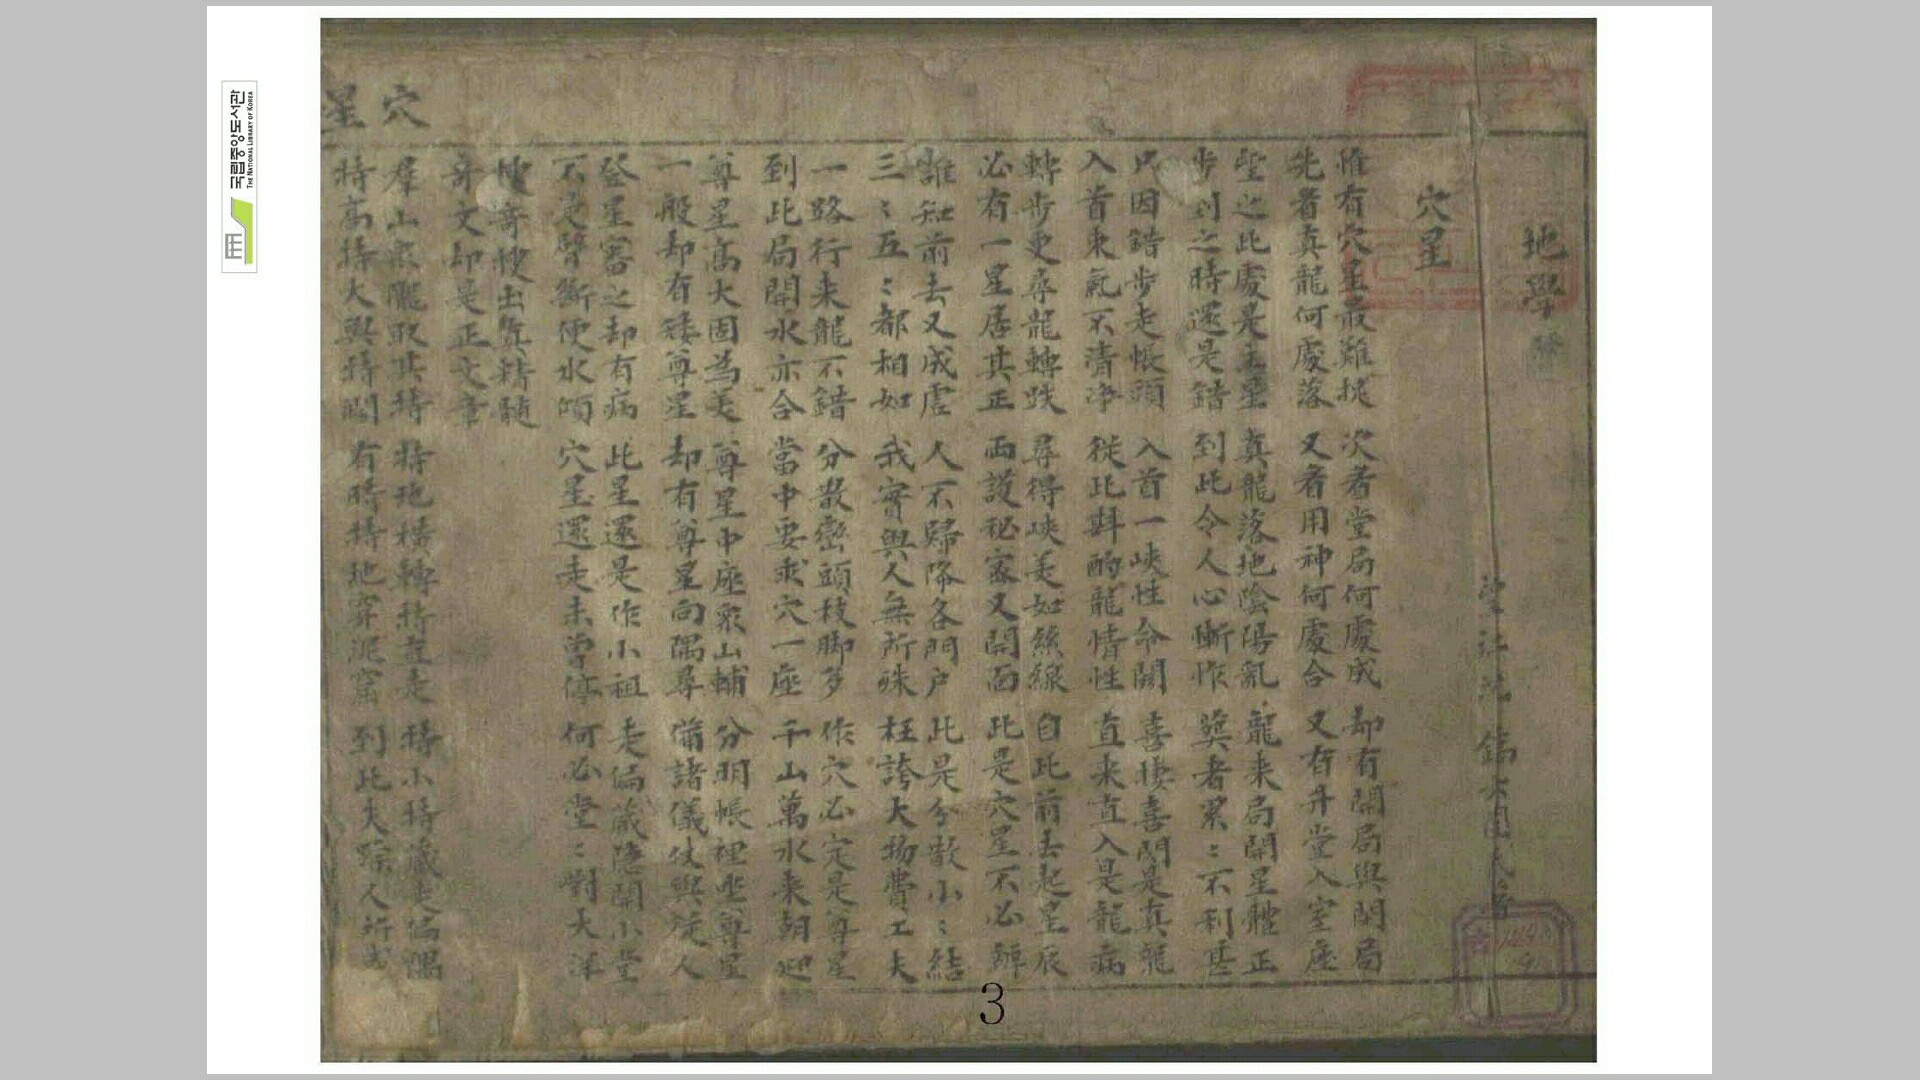 국립중앙도서관
THE NATIONAL LIBRARY OF KOREA
地學
望江沈鎬六圃氏著
穴星
惟有穴星最難挑 次者堂局何處成 却有開局與閉局
先者真龍何處落 又者用神何處合 又有升堂入室座
望之此處是主星 真龍落地陰陽亂 龍来局開星體正
步到之時還是錯 到此令人心慚怍 巽者累〻不利甚
只因錯步走帳頭 入首一峽性命關 喜喜閃是真龍
入首来氣不清净 從此斟酌龍情性 直来直入是龍病
轉步更尋龍轉跌 尋得峽美如絲線 自此前去起星辰
必有一星居其正 両護秘密又開面 此是穴星不必辨
誰知前去又成虛 人不歸降各門户 此是分散小〻結
三〻五〻都相如 我實與人無所殊 枉誇大物費工夫
一路行来龍不錯 分散巒頭枝脚多 作穴必定是尊星
到此局開水亦合 當中要求穴一座 千山萬水来朝迎
尊星高大固為美 尊星中座衆山輔 分明帳裡坐尊星
一般却有矮尊星 却有尊星向隅尋 備諸儀仗與從人
登星審之却有病 此星還是作小祖 走偏藏隱開小堂
不走臂斷便水傾 穴星還走未曾停 何必堂〻對大洋
搜奇搜出真精髓
奇文却是正文章
群山衆隴取其特 特地横轉特直走 特小特藏走偏隅
特高特大與特闊 有時特地穿泥窟 到此失踪人所忽
穴星
3